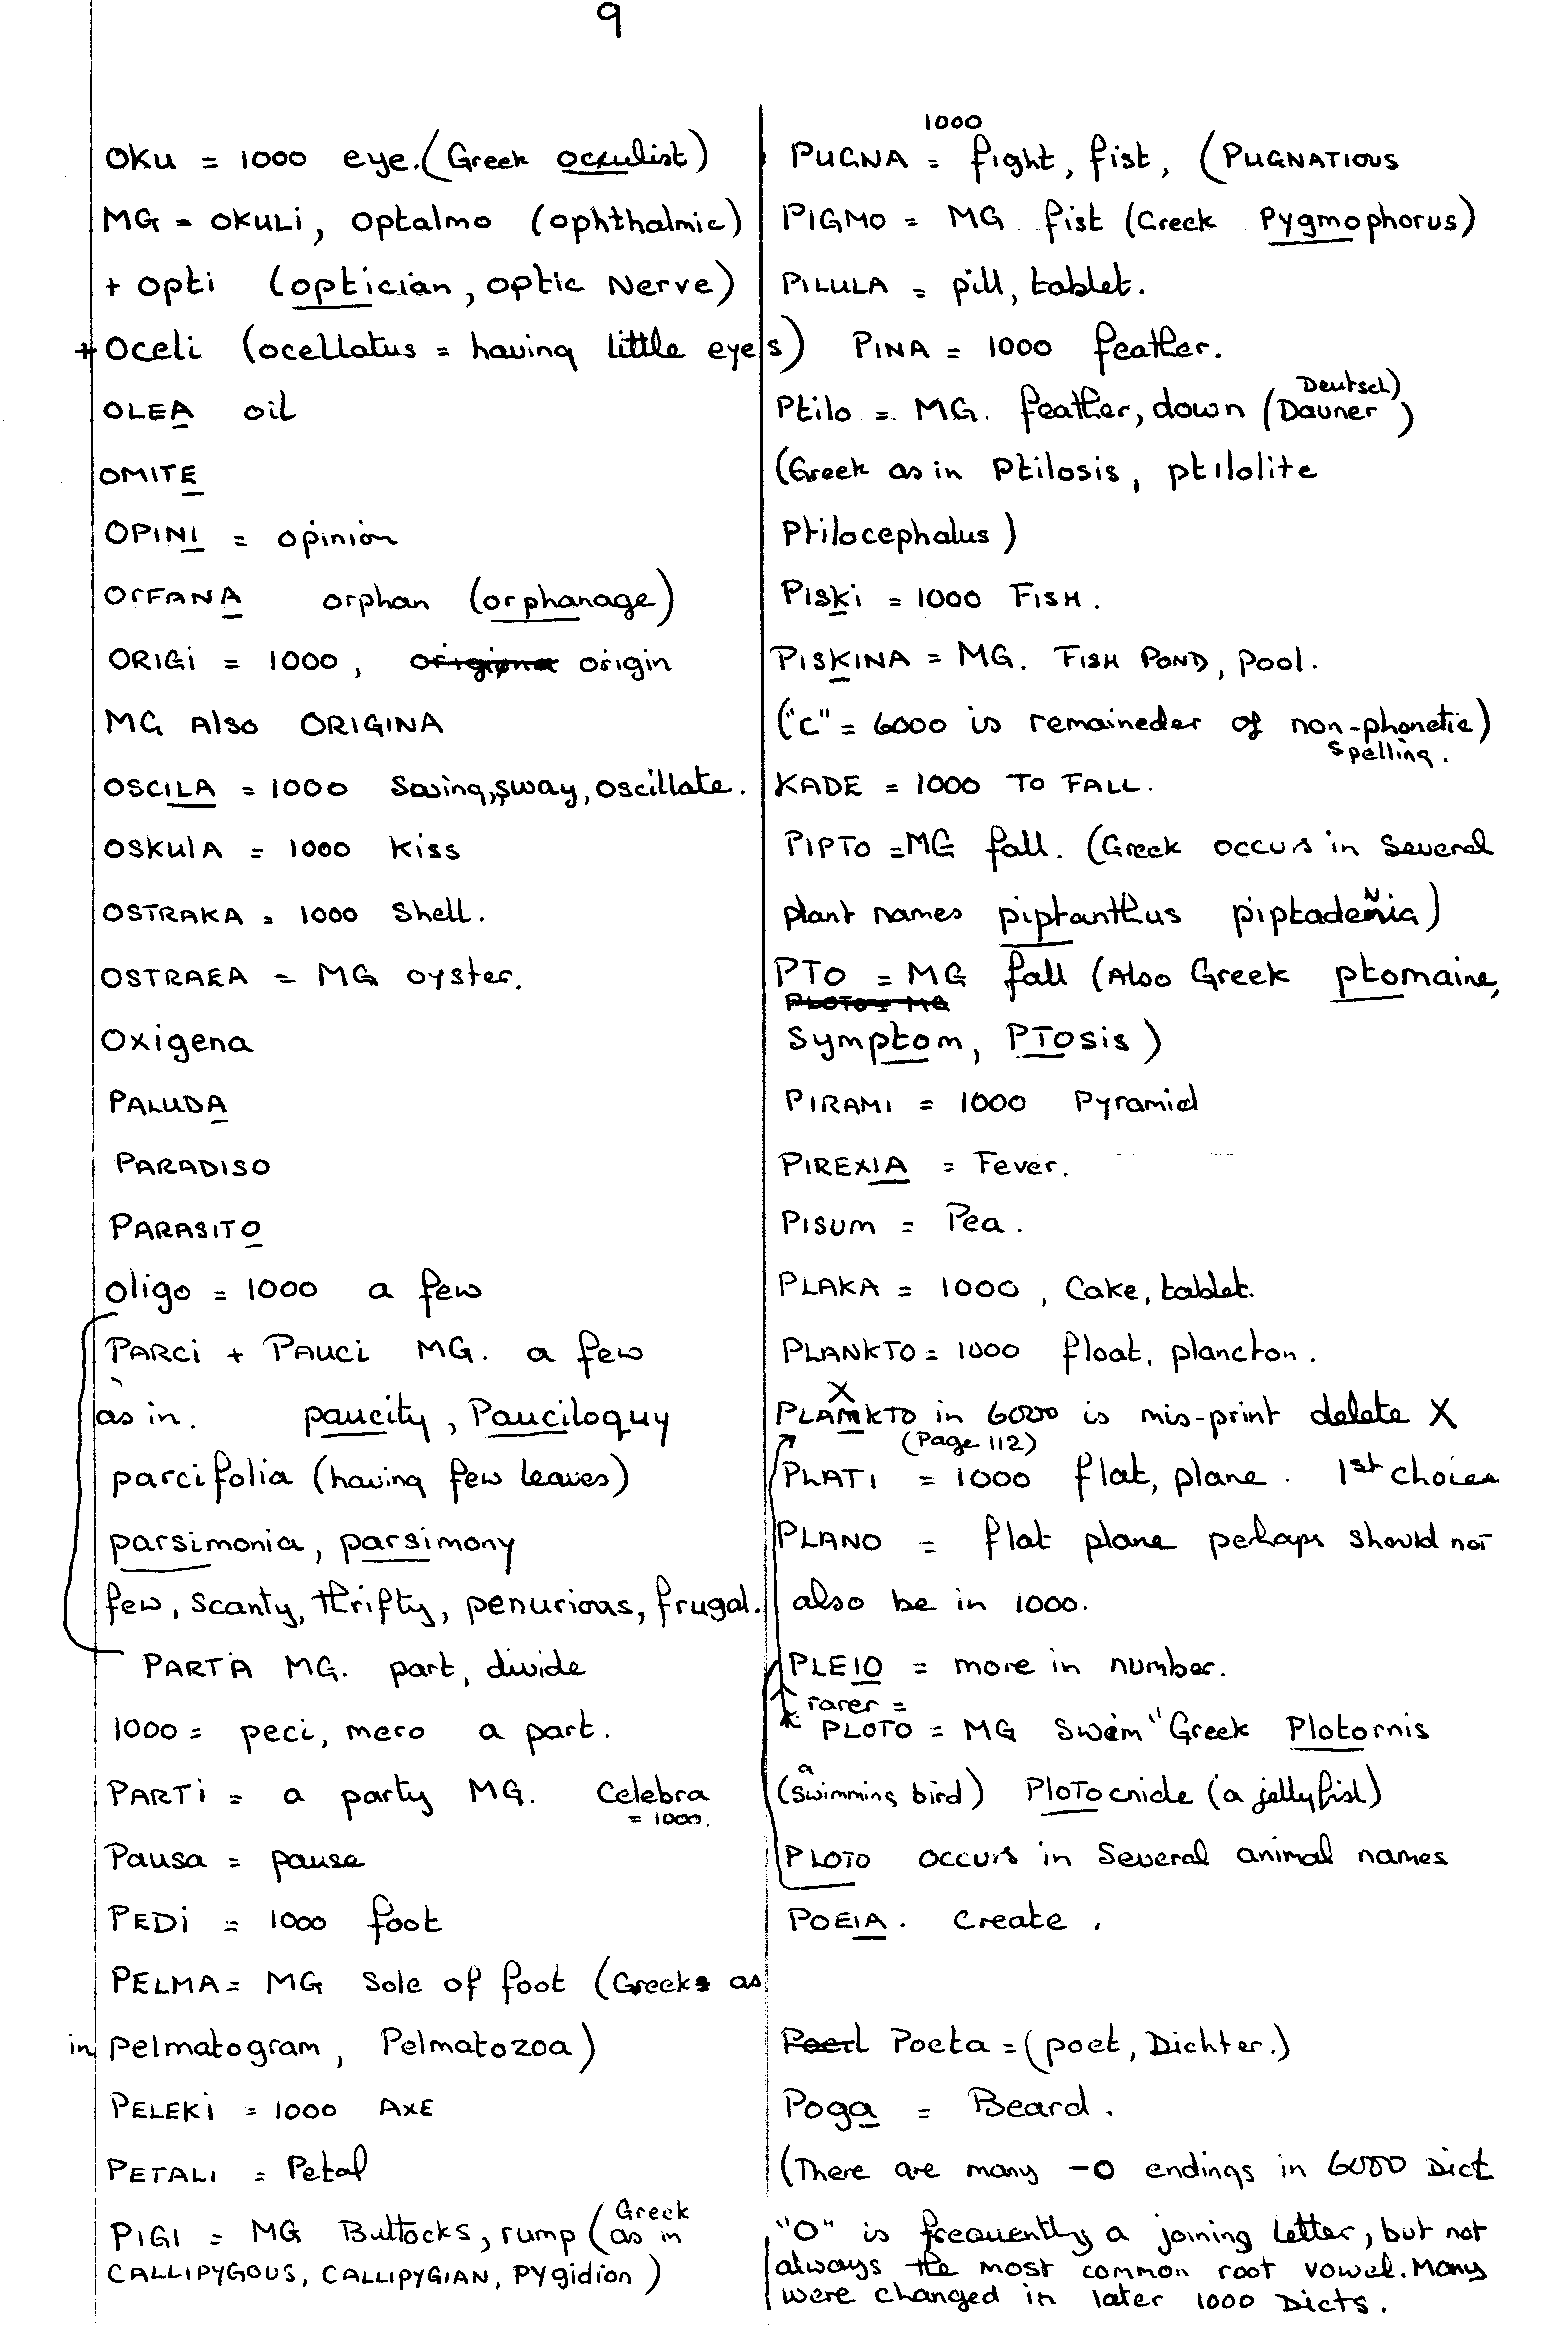 9
OKU = 1000 eye. (Greek occulist)
MG = OKULI, Optalmo (ophthalmic)
+ Opti (optician, optic Nerve)
+ Oceli (ocellatus = having little eyes)
OLEA oil
OMITE
OPINI = opinion
ORFANA orphan (orphanage)
ORIGI = 1000, origin
MG Also ORIGINA
OSCILA = 1000 Swing, sway, oscillate.
OSKULA = 1000 Kiss
OSTRAKA = 1000 Shell.
OSTRAEA = MG oyster.
Oxigena
PALUDA
PARADISO
PARASITO
Oligo = 1000 a few
PARCI + PAUCI MG. a few
as in. paucity, Pauciloquy
parcifolia (having few leaves)
parsimonia, parsimony
few, scanty, thrifty, penurious, frugal.
PARTA MG. part, divide
1000 = peci, mero a part.
PARTI = a party MG. Celebra
= 1000.
Pausa = pause
PEDI = 1000 foot
PELMA = MG Sole of foot (Greek as
in Pelmatogram, Pelmatozoa)
PELEKI = 1000 AXE
PETALI = Petal
PIGI = MG Buttocks, rump (Greek as in
CALLIPYGOUS, CALLIPYGIAN, PYgidion)
1000
PUGNA = fight, fist, (PUGNATIOUS
PIGMO = MG fist (Greek Pygmophorus)
PILULA = pill, tablet.
PINA = 1000 feather.
Ptilo = MG. feather, down (Deutsch Dauner)
(Greek as in Ptilosis, ptilolite
Ptilocephalus)
PISKI = 1000 FISH.
PISKINA = MG. FISH POND, Pool.
("C" = 6000 is remaineder of non-phonetic)
Spelling.
KADE = 1000 TO FALL.
PIPTO = MG fall. (Greek occurs in Several
plant names piptanthus piptadenia)
PTO = MG fall (Also Greek ptomaine,
Symptom, PTOsis)
PIRAMI = 1000 Pyramid
PIREXIA = Fever.
PISUM = Pea.
PLAKA = 1000, Cake, tablet.
PLANKTO = 1000 float, plancton.
X
PLAMKTO in 6000 is mis-print delete X
(Page 112)
PLATI = 1000 flat, plane. 1st choice
PLANO = flat plane perhaps should not
also be in 1000.
PLEIO = more in number.
rarer =
PLOTO = MG Swim "Greek Plotornis
(a Swimming bird) PloTocnide (a jellyfish)
PLOTO occurs in Several animal names
POEIA. Create.
Poeta = (poet, Dichter.)
Poga = Beard.
(There are many -O endings in 6000 Dict
"O" is frequently a joining letter, but not
always the most common root vowel. Many
were changed in later 1000 Dicts.